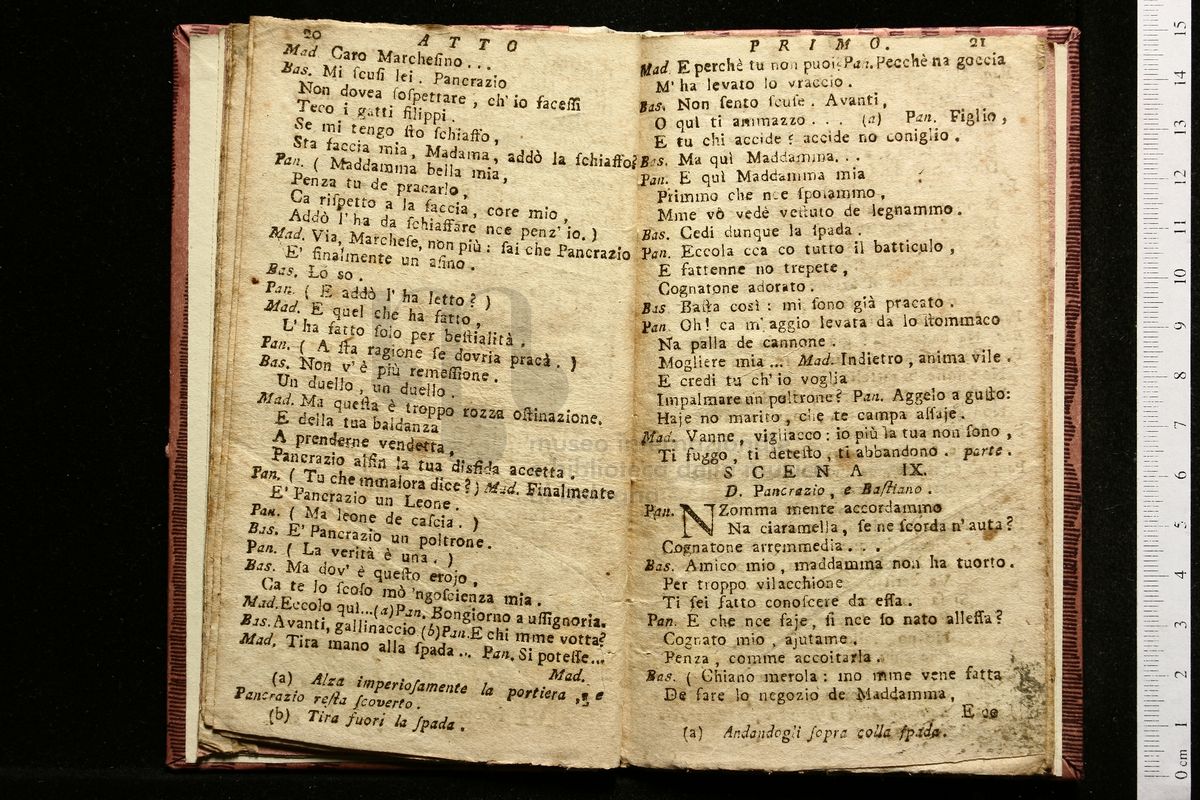 20
ATTO
Mad Caro Marcheſino...
Bas. Mi ſcuſi lei. Pancrazio
Non dovea ſoſpettare, ch' io faceſſi
Teco i gatti filippi.
Se mi tengo ſto ſchiaffo,
Sta faccia mia, Madama, addò la ſchiaffo?
Pan. ( Maddamma bella mia,
Penza tu de pracarlo,
Ca riſpetto a la faccia, core mio,
Addò l' ha da ſchiaffare nce penz' io. )
Mad. Via, Marcheſe, non più: ſai che Pancrazio
E' finalmente un aſino.
Bas. Lo so.
Pan. ( E addò l' ha letto? )
Mad. E quel che ha fatto,
L' ha fatto ſolo per beſtialità.
Pan. ( A ſta ragione ſe dovria pracà. )
Bas. Non v' è più remeſſione.
Un duello, un duello.
Mad. Ma queſta è troppo rozza oſtinazione.
E della tua baldanza
A prenderne vendetta,
Pancrazio alfin la tua disfida accetta.
Pan. ( Tu che mmalora dice? ) Mad. Finalmente
E' Pancrazio un Leone.
Pan. ( Ma leone de caſcia. )
Bas. E' Pancrazio un poltrone.
Pan. ( La verità è una. )
Bas. Ma dov' è queſto erojo,
Ca te lo ſcoſo mò 'ngoſcienza mia.
Mad. Eccolo quì...(a) Pan. Bongiorno a uſſignoria.
Bas. Avanti, gallinaccio (b) Pan. E chi mme votta?
Mad. Tira mano alla ſpada... Pan. Si poteſſe...
Mad.
(a) Alza imperioſamente la portiera, e
Pancrazio reſta ſcoverto.
(b) Tira fuori la ſpada.
PRIMO.
21
Mad. E perchè tu non puoi? Pan. Pecchè na goccia
M' ha levato lo vraccio.
Bas. Non ſento ſcuſe. Avanti,
O quì ti ammazzo... (a) Pan. Figlio,
E tu chi accide? accide no coniglio.
Bas. Ma quì Maddamma...
Pan. E quì Maddamma mia
Primmo che nce ſpoſammo,
Mme vò vedè veſtuto de legnammo.
Bas. Cedi dunque la ſpada.
Pan. Eccola cca co tutto il batticulo,
E fattenne no trepete,
Cognatone adorato.
Bas Baſta così: mi ſono già pracato.
Pan. Oh! ca m' aggio levata da lo ſtommaco
Na palla de cannone.
Mogliere mia... Mad. Indietro, anima vile.
E credi tu ch' io voglia
Impalmare un poltrone? Pan. Aggelo a guſto:
Haje no marito, che te campa aſſaje.
Mad. Vanne, vigliacco: io più la tua non ſono,
Ti fuggo, ti deteſto, ti abbandono. parte.
SCENA IX.
D. Pancrazio, e Baſtiano.
Pan. NZomma mente accordammo
Na ciaramella, ſe ne ſcorda n' auta?
Cognatone arremmedia...
Bas. Amico mio, maddamma non ha tuorto.
Per troppo vilacchione
Ti ſei fatto conoſcere da eſſa.
Pan. E che nce faje, ſi nce ſo nato alleſſa?
Cognato mio, ajutame.
Penza, comme accoitarla.
Bas. ( Chiano merola: mo mme vene fatta
De fare lo negozio de Maddamma,
E co
(a) Andandogli ſopra colla ſpada.
museo
biblioteca della musica